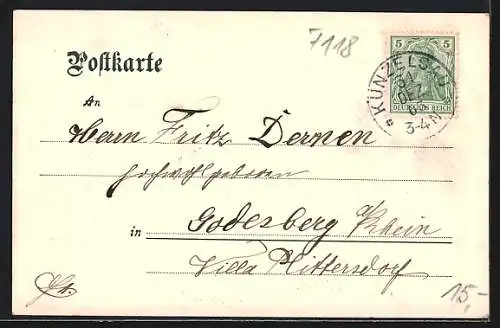 7118
Postkarte
5 5
DEUTSCHES REICH
KÜNZELSAU
31
DEZ
3-4 N
An
Herrn Fritz Dernen
Hochwohlgeboren
in Godesberg a/Rhein
Villa Mittersdorf
15,-